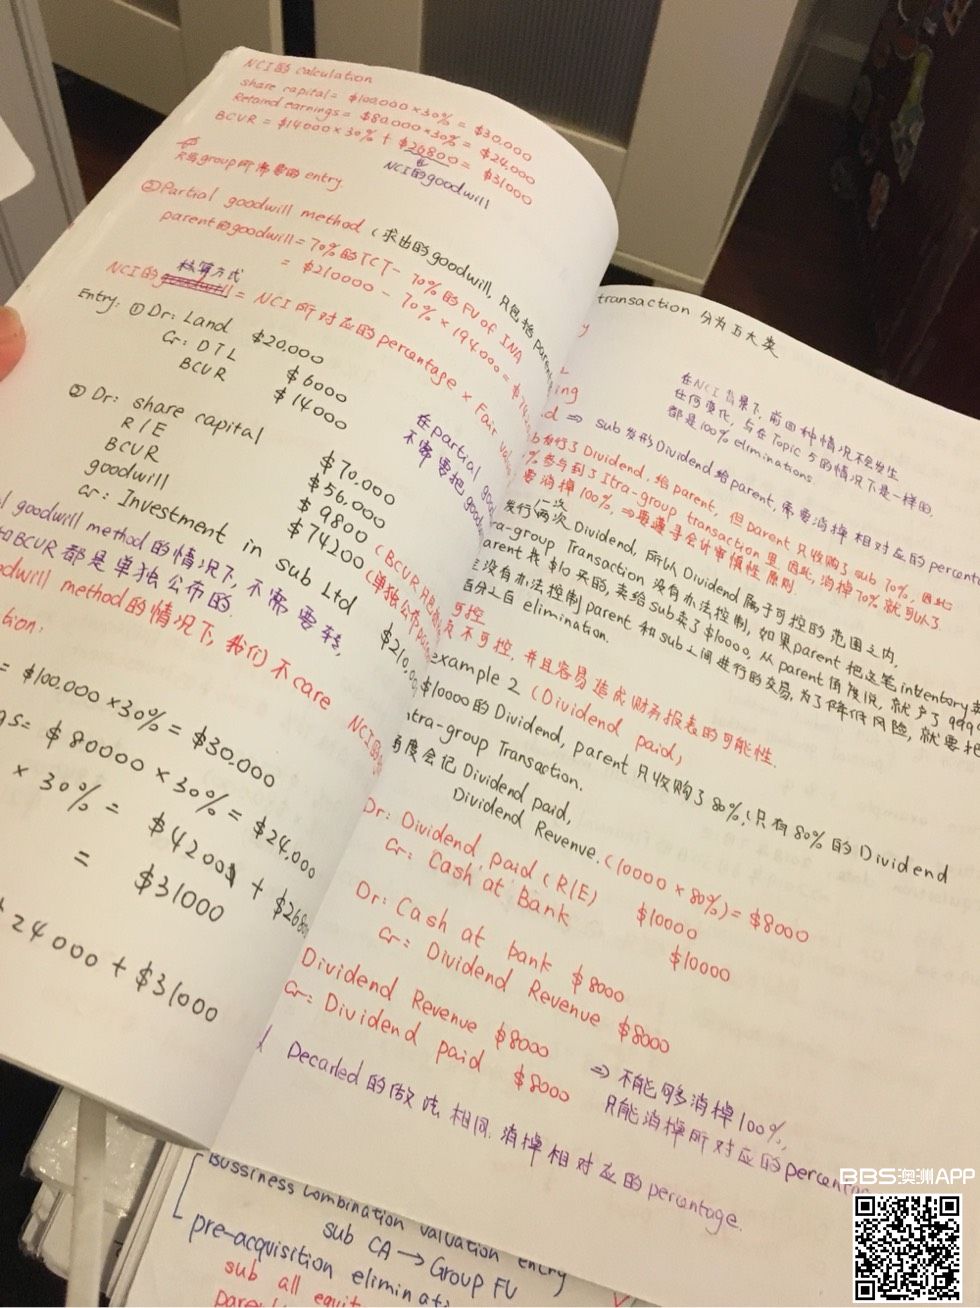 NCI的 calculation
share capital = $100.000 × 30% = $30.000
Retained earnings = $80.000 × 30% = $24,000
BCUR = $14000 × 30% + $26800 = $31000
NCI的goodwill
group所需要的 entry.
②Partial goodwill method (求出的goodwill, 只包括paren
parent的goodwill = 70%的TCT - 70%的FV of INA
= $210000 - 70% × 194000 = $742
核算方式
NCI的 = NCI所对应的percentage × Fair valu
Entry: ① Dr: Land $20,000
Cr: DTL $6000
BCUR $14000
在partial go
不需要把goodw
② Dr: share capital $70.000
R/E $56.000
BCUR $9800
goodwill $74200
cr: Investment in sub Ltd $210.0
l goodwill method的情况下, 不需要转,
BCUR都是单独公布的
dwill method的情况下, 我们不care NCI的
tion:
= $100.000 × 30% = $30.000
gs = $80000 × 30% = $24,000
× 30% = $4200 + $268
= $31000
+ 24000 + $31000
transaction 分为五大类
y
在NCI背景下, 前四种情况不会发生
任何变化, 与在Topic 5的情况下是一样的,
都是100% eliminations.
ing
d ⇒ sub发布Dividend给parent, 需要消掉相对应的percenta
b发行了Dividend, 给parent, 但parent只收购了sub 70%, 因此
%参与到了Itra-group transaction里, 因此, 消掉70%就可以了
要消掉100%, ⇒ 要遵寻会计审慎性原则
一次
发行两次Dividend, 所以Dividend属于可控的范围之内,
ra-group Transaction没有办法控制, 如果parent把这笔inventory卖
arent我$10买的, 卖给sub卖了$1000, 从parent角度说, 就产了999
没有办法控制parent和sub之间进行的交易, 为了降低风险, 就要把
百分之百elimination.
可控
不可控, 并且容易造成财务报表的可能性.
example 2 (Dividend paid,
$10000的Dividend, parent只收购了80%, (只有80%的Dividend
ntra-group Transaction.
角度会记Dividend paid,
Dividend Revenue. (10000 × 80%) = $8000
Dr: Dividend paid (R/E) $10000
Cr: Cash at Bank $10000
Dr: Cash at bank $8000
Cr: Dividend Revenue $8000
Dividend Revenue $8000
Cr: Dividend paid $8000
⇒ 不能够消掉100%,
只能消掉所对应的percentag
Decarled的做法相同. 消掉相对应的percentage.
BBS澳洲APP
Bussiness combination valuation entry
sub CA → Group FV
pre-acquisition eliminat
sub all equit